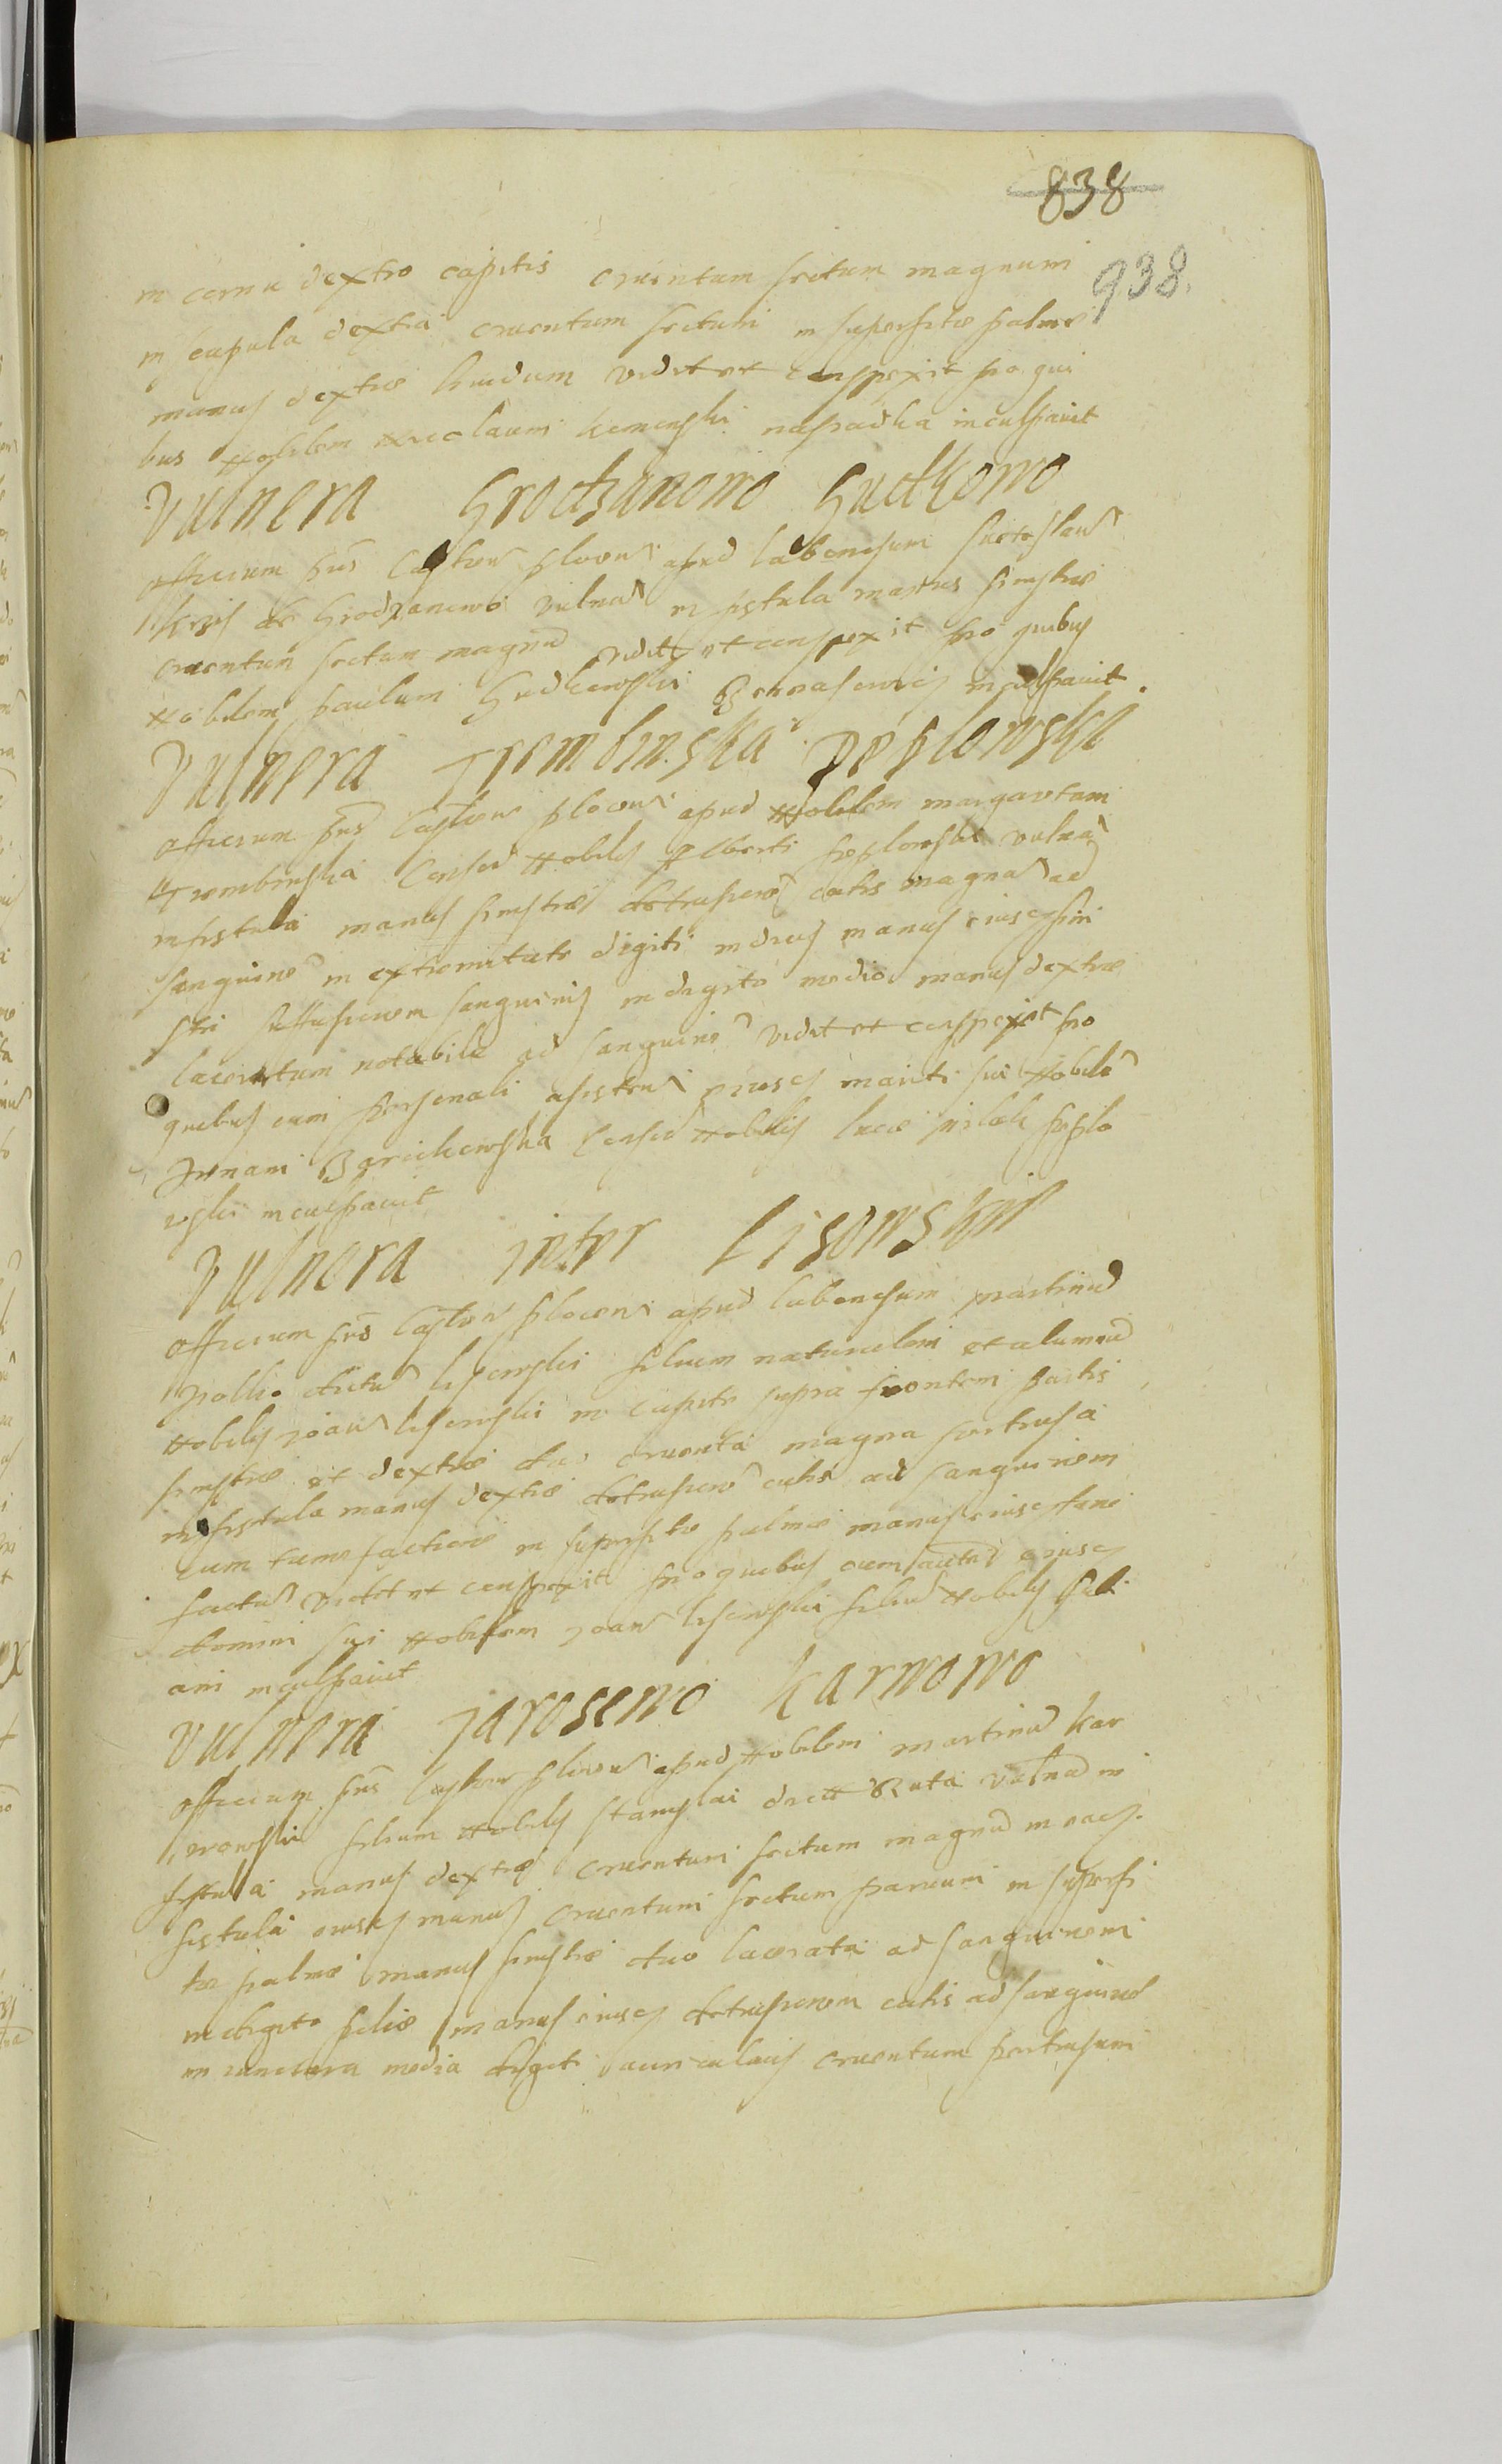 838
938.
in cornu dextro capitis cruentum sectum magnum
in capula dextra cruentum sectum in superficie palme
manus dextre liuidum vidit et conspexit pro qui
bus Nobilem Nicolaum kemenski napadka inculpauit
Vulnera Grodzanowo Gutkowo
officium pns Castren plocen apud laboriosum
de Grodzanowo vulnað in fistula manus sinistre
cruentum sectum magnu vidit et conspexit pro quibus
Nobilem paulum Gudkowski inculpauit.
Vulnera Trembinska Peplowska
officium pns Castren plocen apud Nobilem margaretam
Trembinska Consor Nobilis Alberti peplowski vulnað
in fistula manus sinistre detrusione cutis magna ad
sanguine in extremitate digiti indicis manus eiusdem sini
stri suffusionem sanguinis in digito medio manus dextre
laceratum notabile ad sanguine vidit et conspexit pro
quibus cum personali assisten eiusd mariti sui Nobile
Annam Borickowska Consor Nobilis luce peplo
wski inculpauit
Vulnera inter Lisowskii
officium pns Castren plocen apud laboriosum martinu
dictu lisowski filium naturalem et alumnu
Nobilis Joan lisowski in capite supra frontem partis
sinistre et dextre duo cruenta magna pertrusa
in fistula manus dextre detrusione cutis ad sanguinem
cum tumefactione in superficie palme manus eiusdem
factu vidit et conspexit pro quibus cum eiusd
domini sui Nobilem Joan lisowski filiu Nobilis
ani inculpauit
Vulnera Jarosewo karwowo
officium pns Castren plocen apud Nobilem martinu kar
wowski filium Nobilis Stanislai dictt Buta vulnað in
fistula manus dextre cruentum sectum magnu in ead.
fistula eiusd manus cruentum sectum paruum in superfi
cie palme manus sinistre duo lacerata ad sanguinem
in digito police manus eiusd detrusionem cutis ad sanguine
in iunctura media digiti auricularis cruentum pertrusum